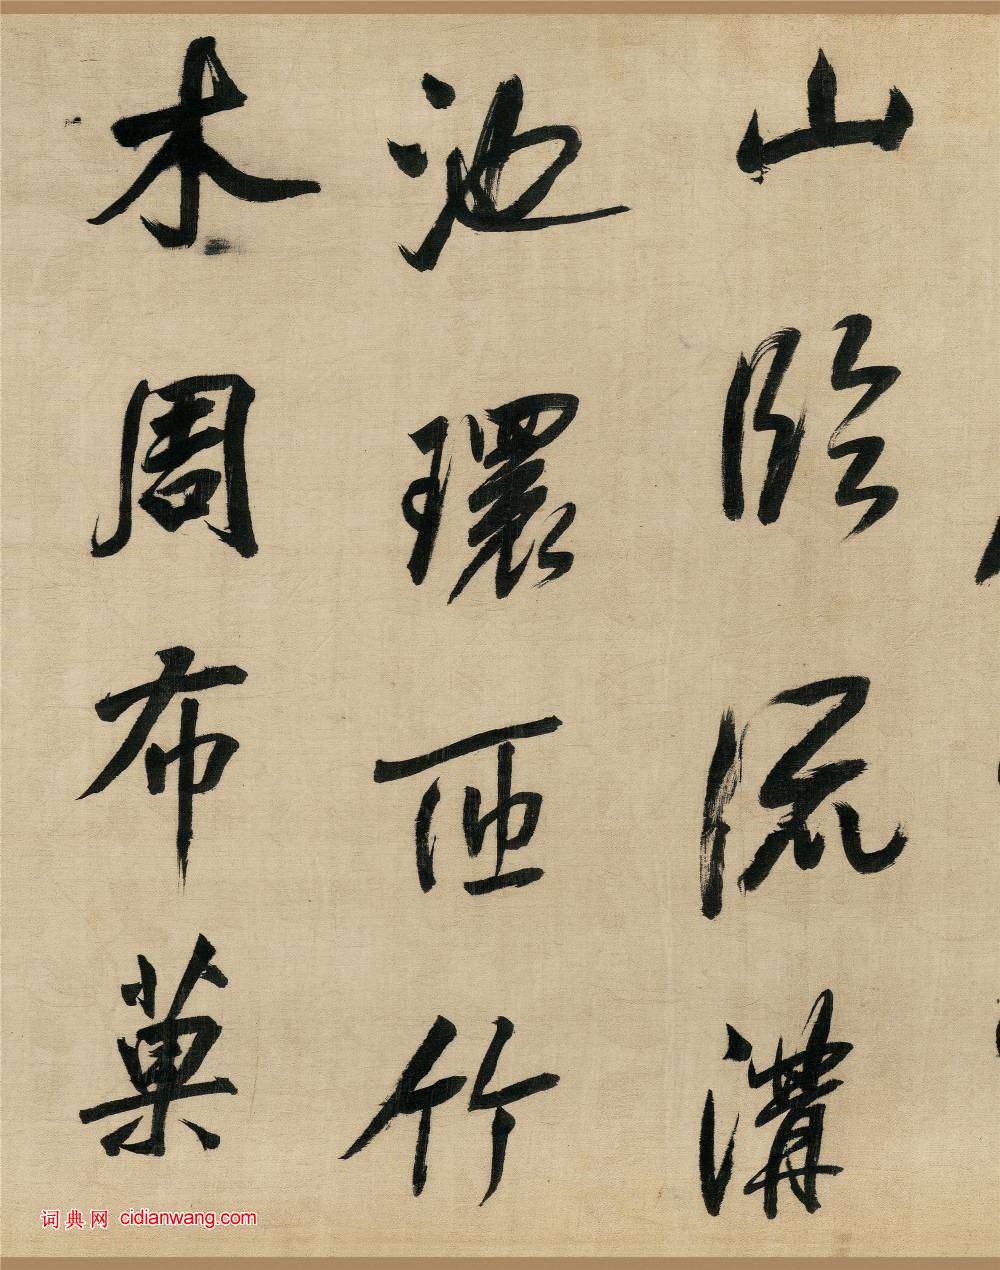 山臨流溝
池環匝竹
木周布菓
词典网 cidianwang.com